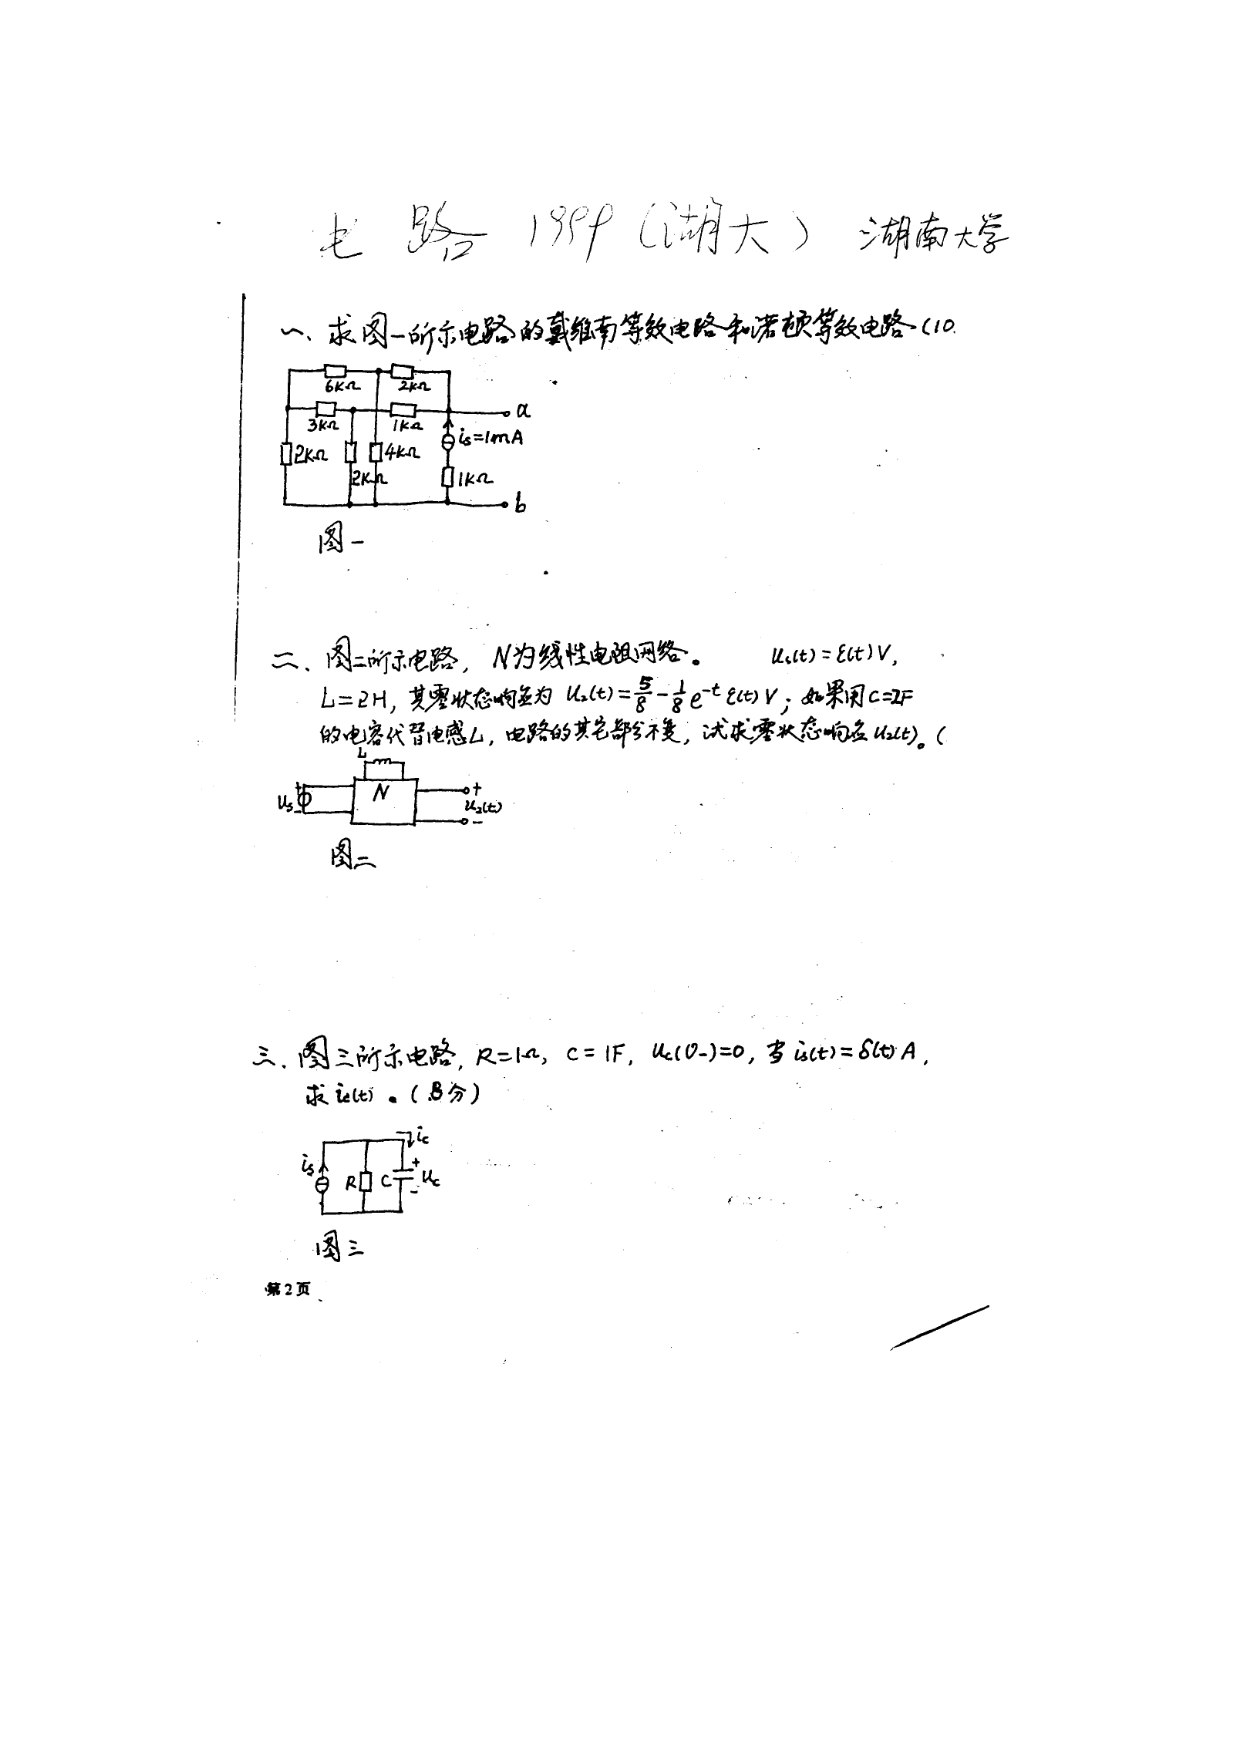 电路 1999（湖大） 湖南大学
一、求图一所示电路的戴维南等效电路和诺顿等效电路（10
6KΩ 2KΩ
a
3KΩ 1KΩ
is=1mA
2KΩ 4KΩ
2KΩ 1KΩ
b
图一
二、图二所示电路，N为线性电阻网络。 Us(t)=ε(t)V，
L=2H，其零状态响应为 U₂(t)=5/8-1/8e⁻ᵗ ε(t)V；如果用C=2F
的电容代替电感L，电路的其它部分不变，试求零状态响应U₂(t)。（
L
Us + - N + U₂(t) -
图二
三、图三所示电路，R=1Ω，C=1F，Uc(0-)=0，当 is(t)=δ(t)A，
求ic(t)。（8分）
ic
is R C + Uc -
图三
第2页